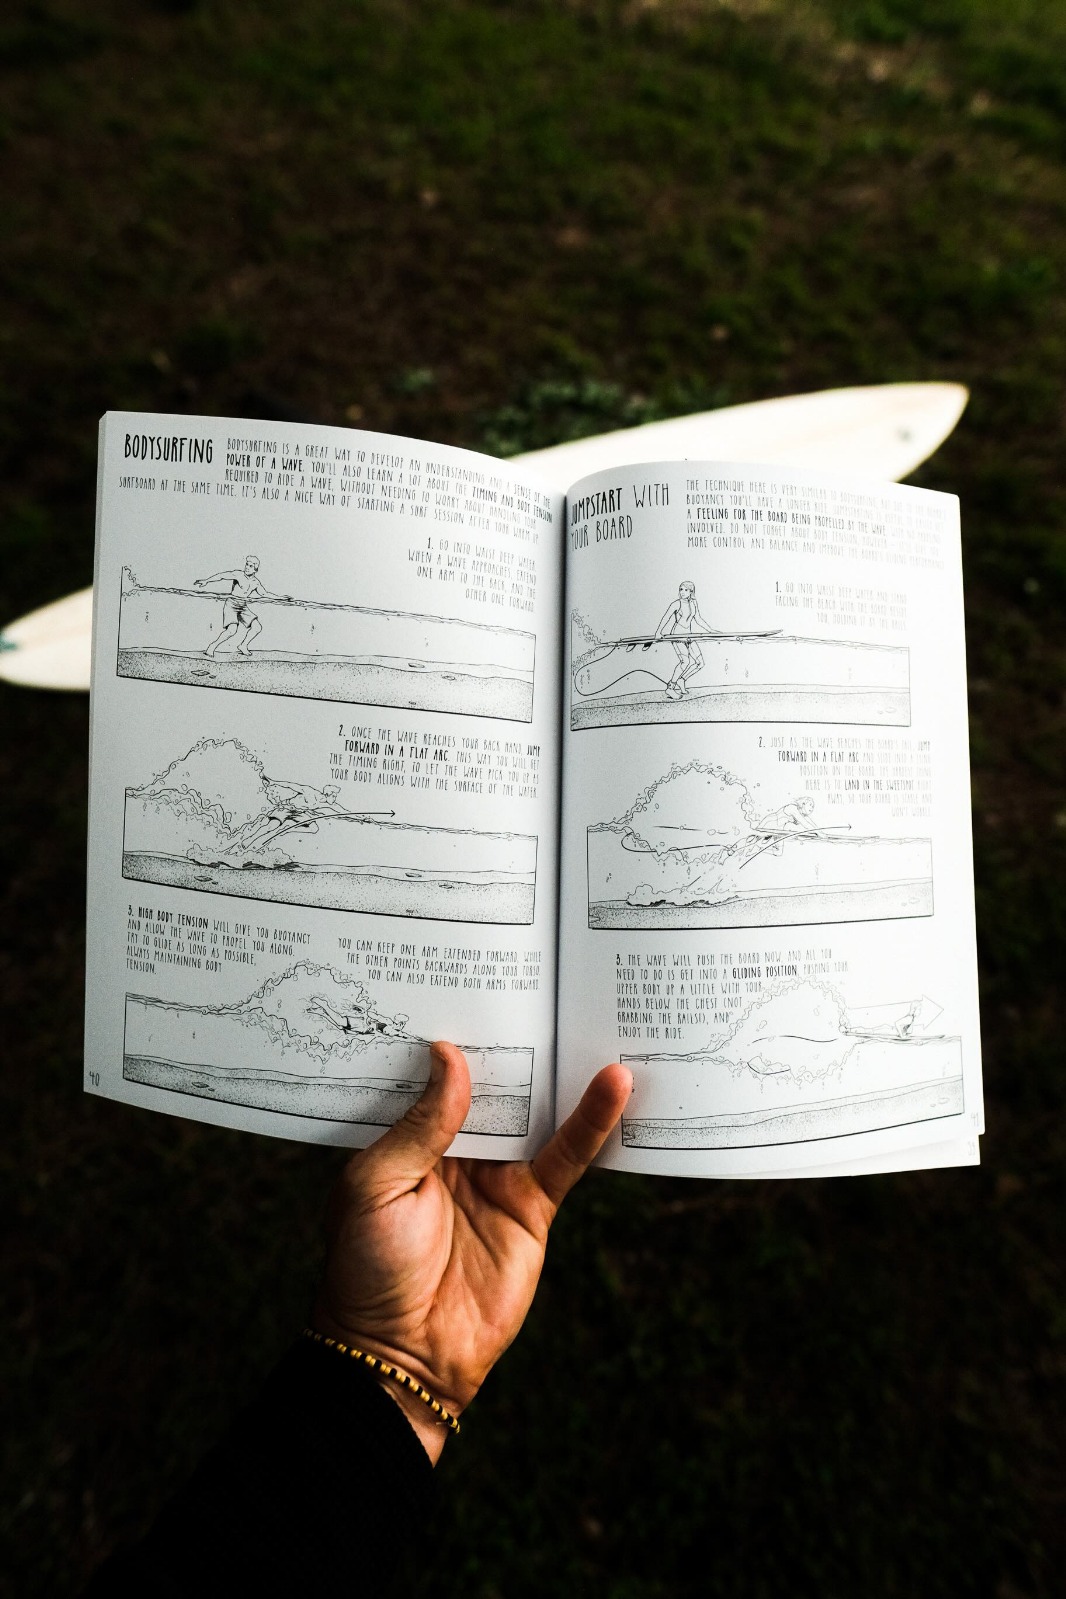 BODYSURFING
BODYSURFING IS A GREAT WAY TO DEVELOP AN UNDERSTANDING AND A SENSE OF THE
POWER OF A WAVE. YOU'LL ALSO LEARN A LOT ABOUT THE TIMING AND BODY TENSION
REQUIRED TO RIDE A WAVE, WITHOUT NEEDING TO WORRY ABOUT HANDLING YOUR
SURFBOARD AT THE SAME TIME. IT'S ALSO A NICE WAY OF STARTING A SURF SESSION AFTER YOUR WARM UP.
1. GO INTO WAIST DEEP WATER.
WHEN A WAVE APPROACHES, EXTEND
ONE ARM TO THE BACK, AND THE
OTHER ONE FORWARD.
2. ONCE THE WAVE REACHES YOUR BACK HAND, JUMP
FORWARD IN A FLAT ARC. THIS WAY YOU WILL GET
THE TIMING RIGHT, TO LET THE WAVE PICK YOU UP AS
YOUR BODY ALIGNS WITH THE SURFACE OF THE WATER.
3. HIGH BODY TENSION WILL GIVE YOU BUOYANCY
AND ALLOW THE WAVE TO PROPEL YOU ALONG.
TRY TO GLIDE AS LONG AS POSSIBLE,
ALWAYS MAINTAINING BODY
TENSION.
YOU CAN KEEP ONE ARM EXTENDED FORWARD, WHILE
THE OTHER POINTS BACKWARDS ALONG YOUR TORSO.
YOU CAN ALSO EXTEND BOTH ARMS FORWARD.
40
JUMPSTART WITH
YOUR BOARD
THE TECHNIQUE HERE IS VERY SIMILAR TO BODYSURFING, BUT DUE TO THE BOARD'S
BUOYANCY YOU'LL HAVE A LONGER RIDE.
A FEELING FOR THE BOARD BEING PROPELLED BY THE WAVE, WITH NO PADDLING
INVOLVED. DO NOT FORGET ABOUT BODY TENSION, HOWEVER
MORE CONTROL AND BALANCE AND IMPROVE THE BOARD'S GLIDING PERFORMANCE.
1. GO INTO WAIST DEEP WATER AND STAND
FACING THE BEACH WITH THE BOARD BESIDE
YOU, HOLDING IT BY THE RAILS.
2. JUST AS THE WAVE REACHES THE BOARD'S TAIL, JUMP
FORWARD IN A FLAT ARC AND
POSITION ON THE BOARD. THE
HERE IS TO LAND IN THE SWEETSPOT RIGHT
AWAY, SO YOUR BOARD IS STABLE AND
WON'T WOBBLE.
3. THE WAVE WILL PUSH THE BOARD NOW, AND ALL YOU
NEED TO DO IS GET INTO A GLIDING POSITION, PUSHING YOUR
UPPER BODY UP A LITTLE WITH YOUR
HANDS BELOW THE CHEST (NOT
GRABBING THE RAILS!), AND
ENJOY THE RIDE.
41